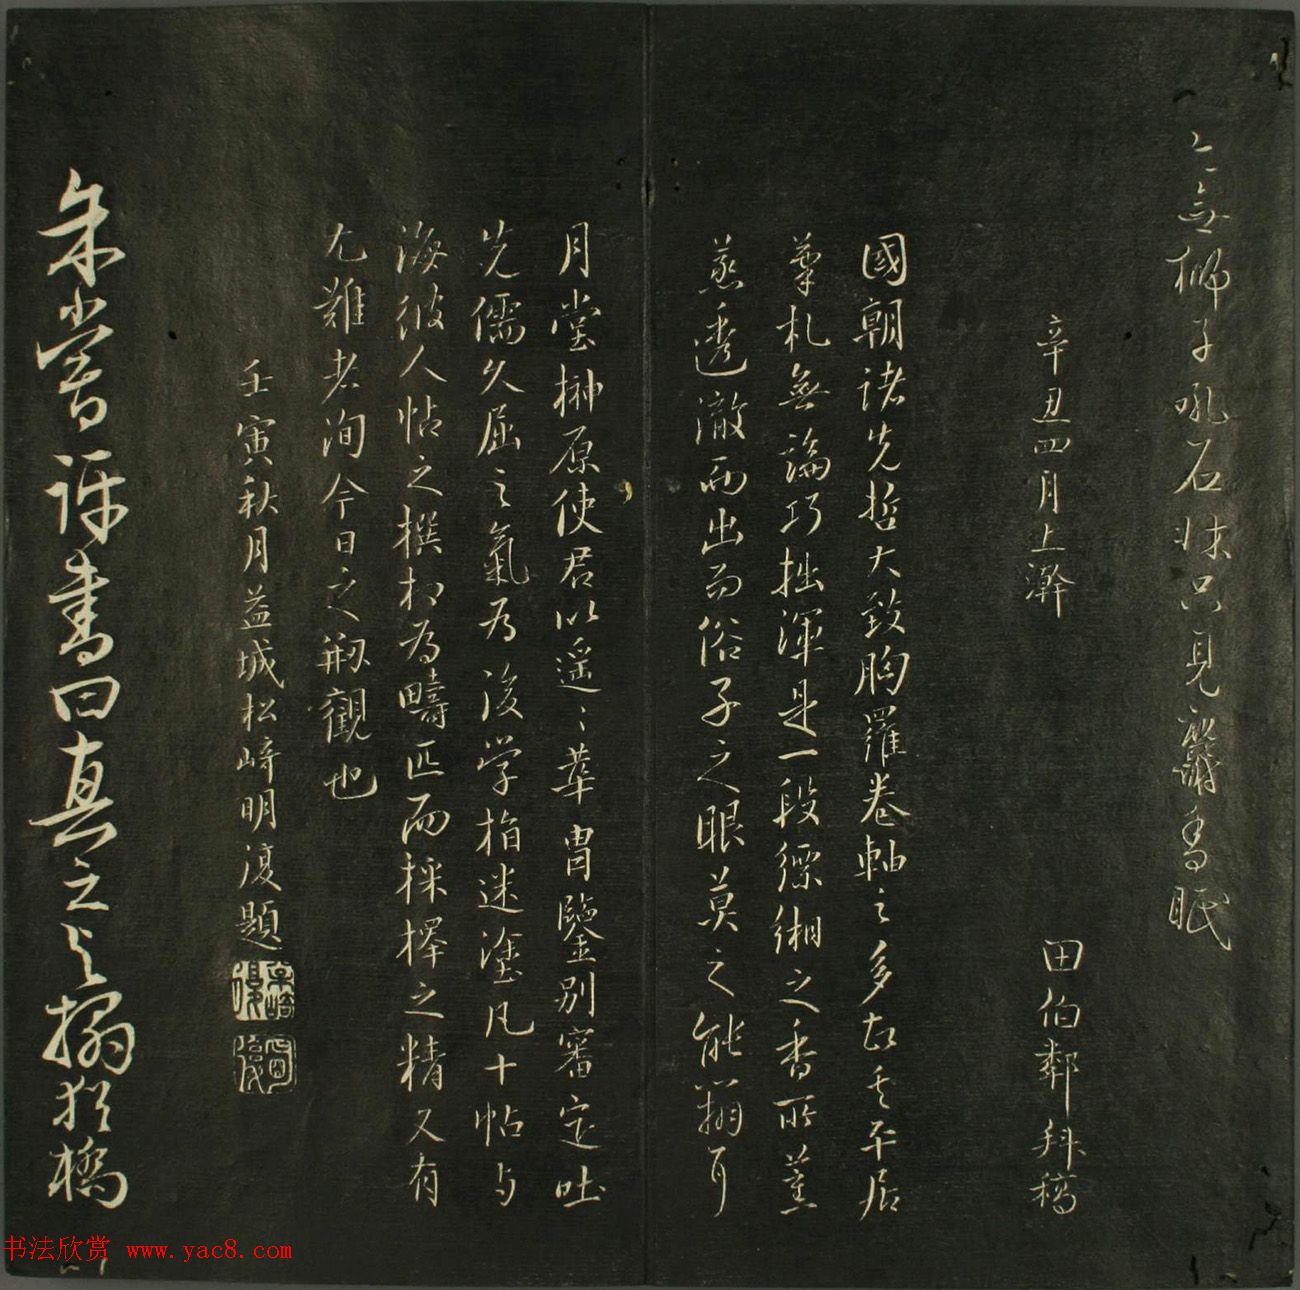 無獅子吼石牀只見麝香眠
辛丑四月上澣
田伯鄰拜稿
國朝諸先哲大致胸羅卷軸之多故其平居
筆札無論巧拙渾是一段縹緗之香所薰
蒸透澈而出而俗子之眼莫之能翳耳
月堂榊原使君以遥〻華冑鑒別審定吐
先儒久屈之氣為後学指迷塗凡十帖与
海彼人帖之撰相為疇匹而採擇之精又有
尤難者洵今日之創觀也
壬寅秋月益城松崎明復題
朱常評書曰真之与搨猶橋
书法欣赏 www.yac8.com